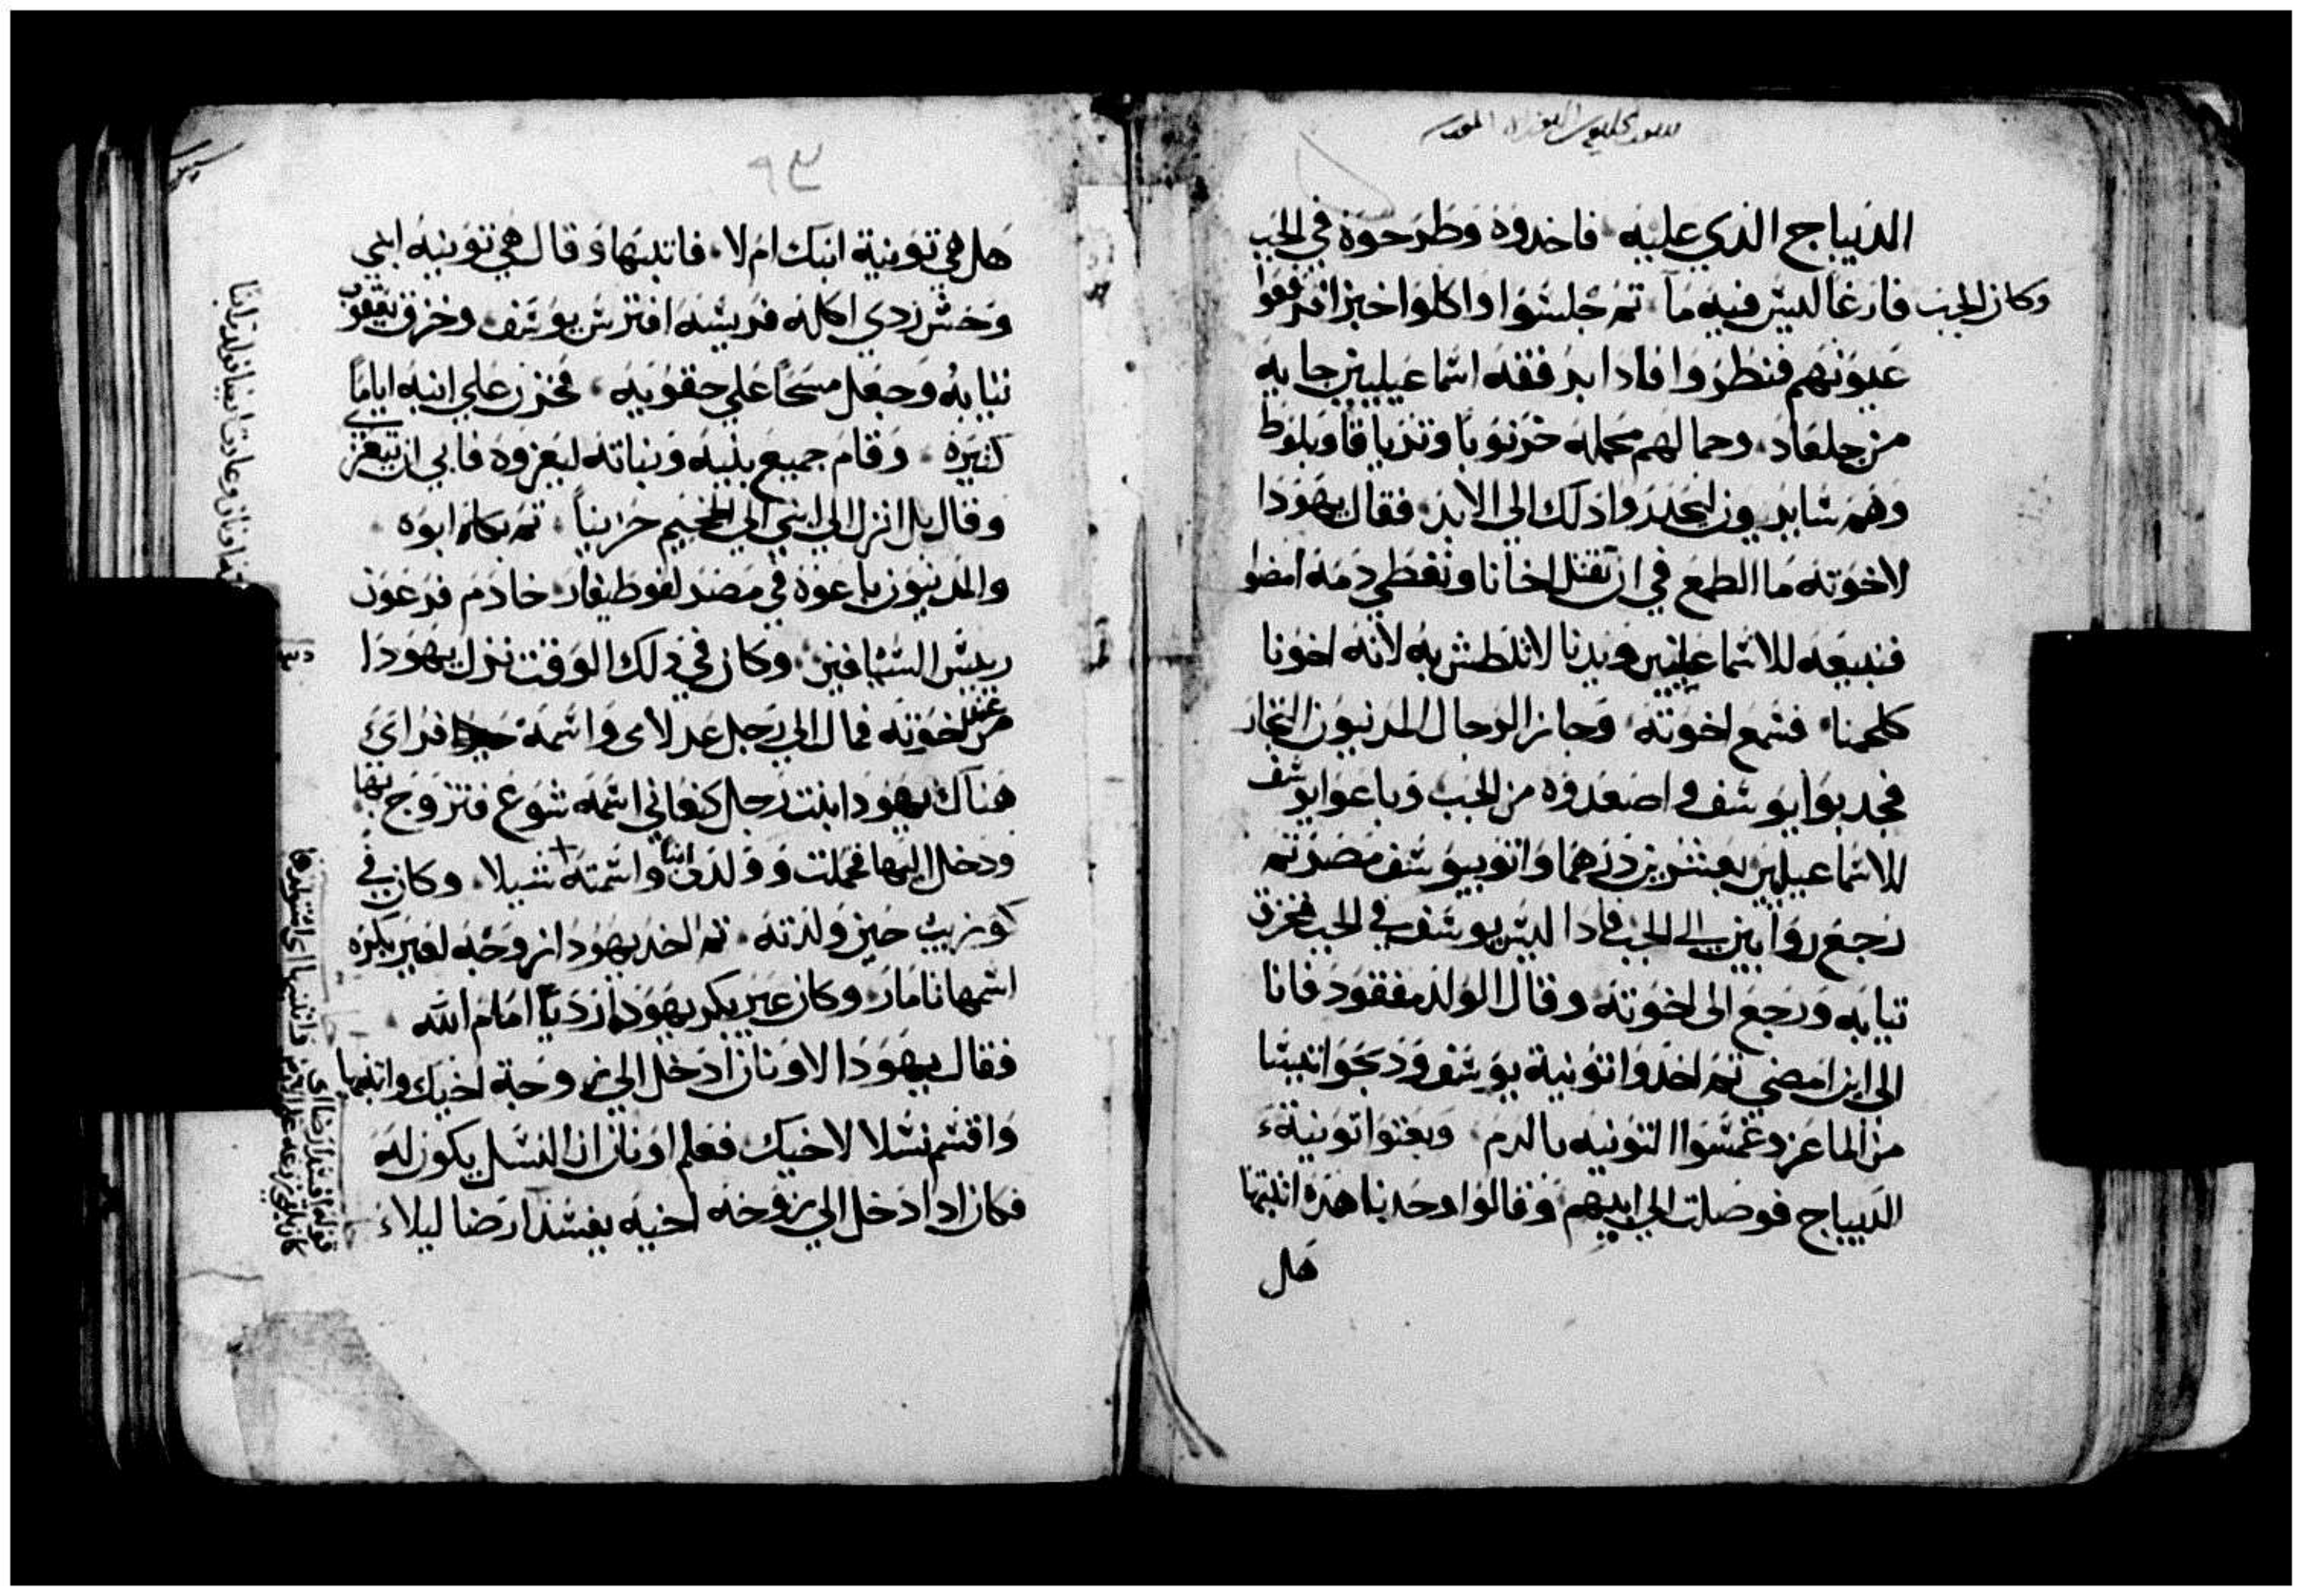 الديباج الذي عليه فاخدوه وطرحوه في الجب
وكان الجب فارغا ليس فيه ما تم جلسوا واكلوا خبزا فرفعوا
عيونهم فنظروا فادا برفقه اسماعيليين جايه
من جلعاد وجمالهم محمله خرنوبا وترياقا وبلوط
وهم سايرون لينحدروا دلك الي الابد فقال يهودا
لاخوته ما الطمع في ان نقتل اخانا ونغطي دمه امضوا
فنبيعه للاسماعيليين ويدنا لا نلطش به لانه اخونا
كلحمنا فسمع اخوته وجاز الرجال المدنيون التجار
فجدبوا يوسف واصعدوه من الجب وباعوا يوسف
للاسماعيليين بعشرين درهما واتوا بيوسف مصر تم
رجع روابين الي الجب فادا ليس يوسف في الجب فخزق
تيابه ورجع الى اخوته وقال الولد مفقود فانا
الى اين امضي تم اخدوا تونية يوسف ودبحوا تيسا
من الماعز وغمسوا التونيه بالدم وبعتوا تونية
الديباج فوصلت الي ابيهم وقالوا وجدنا هده اتبتها
هل
٩٣
هل هي تونية ابنك ام لا فاتبتها وقال هي تونيه ابني
وحش ردي اكله فريسه افترس يوسف وخزق يعقوب
تيابه وجعل مسحا علي حقويه فحزن علي ابنه اياما
كتيره وقام جميع بنيه وبناته ليعزوه فابي ان يتعزي
وقال بل انزل الي ابني الي الجحيم حزينا تم بكاه ابوه
والمدنيون باعوه في مصر لفوطيفار خادم فرعون
رييس السيافين وكان في دلك الوقت نزل يهودا
من عند اخوته فمال الي رجل عدلامى واسمه حيرا فراي
هناك يهودا ابنت رجل كنعاني اسمه شوع فتزوج بها
ودخل اليها فحملت وولدت ابنا واسمته شيلا وكان في
كوزيب حين ولدته تم اخد يهودا زوجه لعير بكره
اسمها تامار وكان عير بكر يهودا رديا امام الله
فقال يهودا لاونان ادخل الي زوجة اخيك واتبتها
واقسم نسلا لاخيك فعلم اونان ان النسل يكون له
فكان ادا دخل الي زوجه اخيه يفسد ارضا ليلا